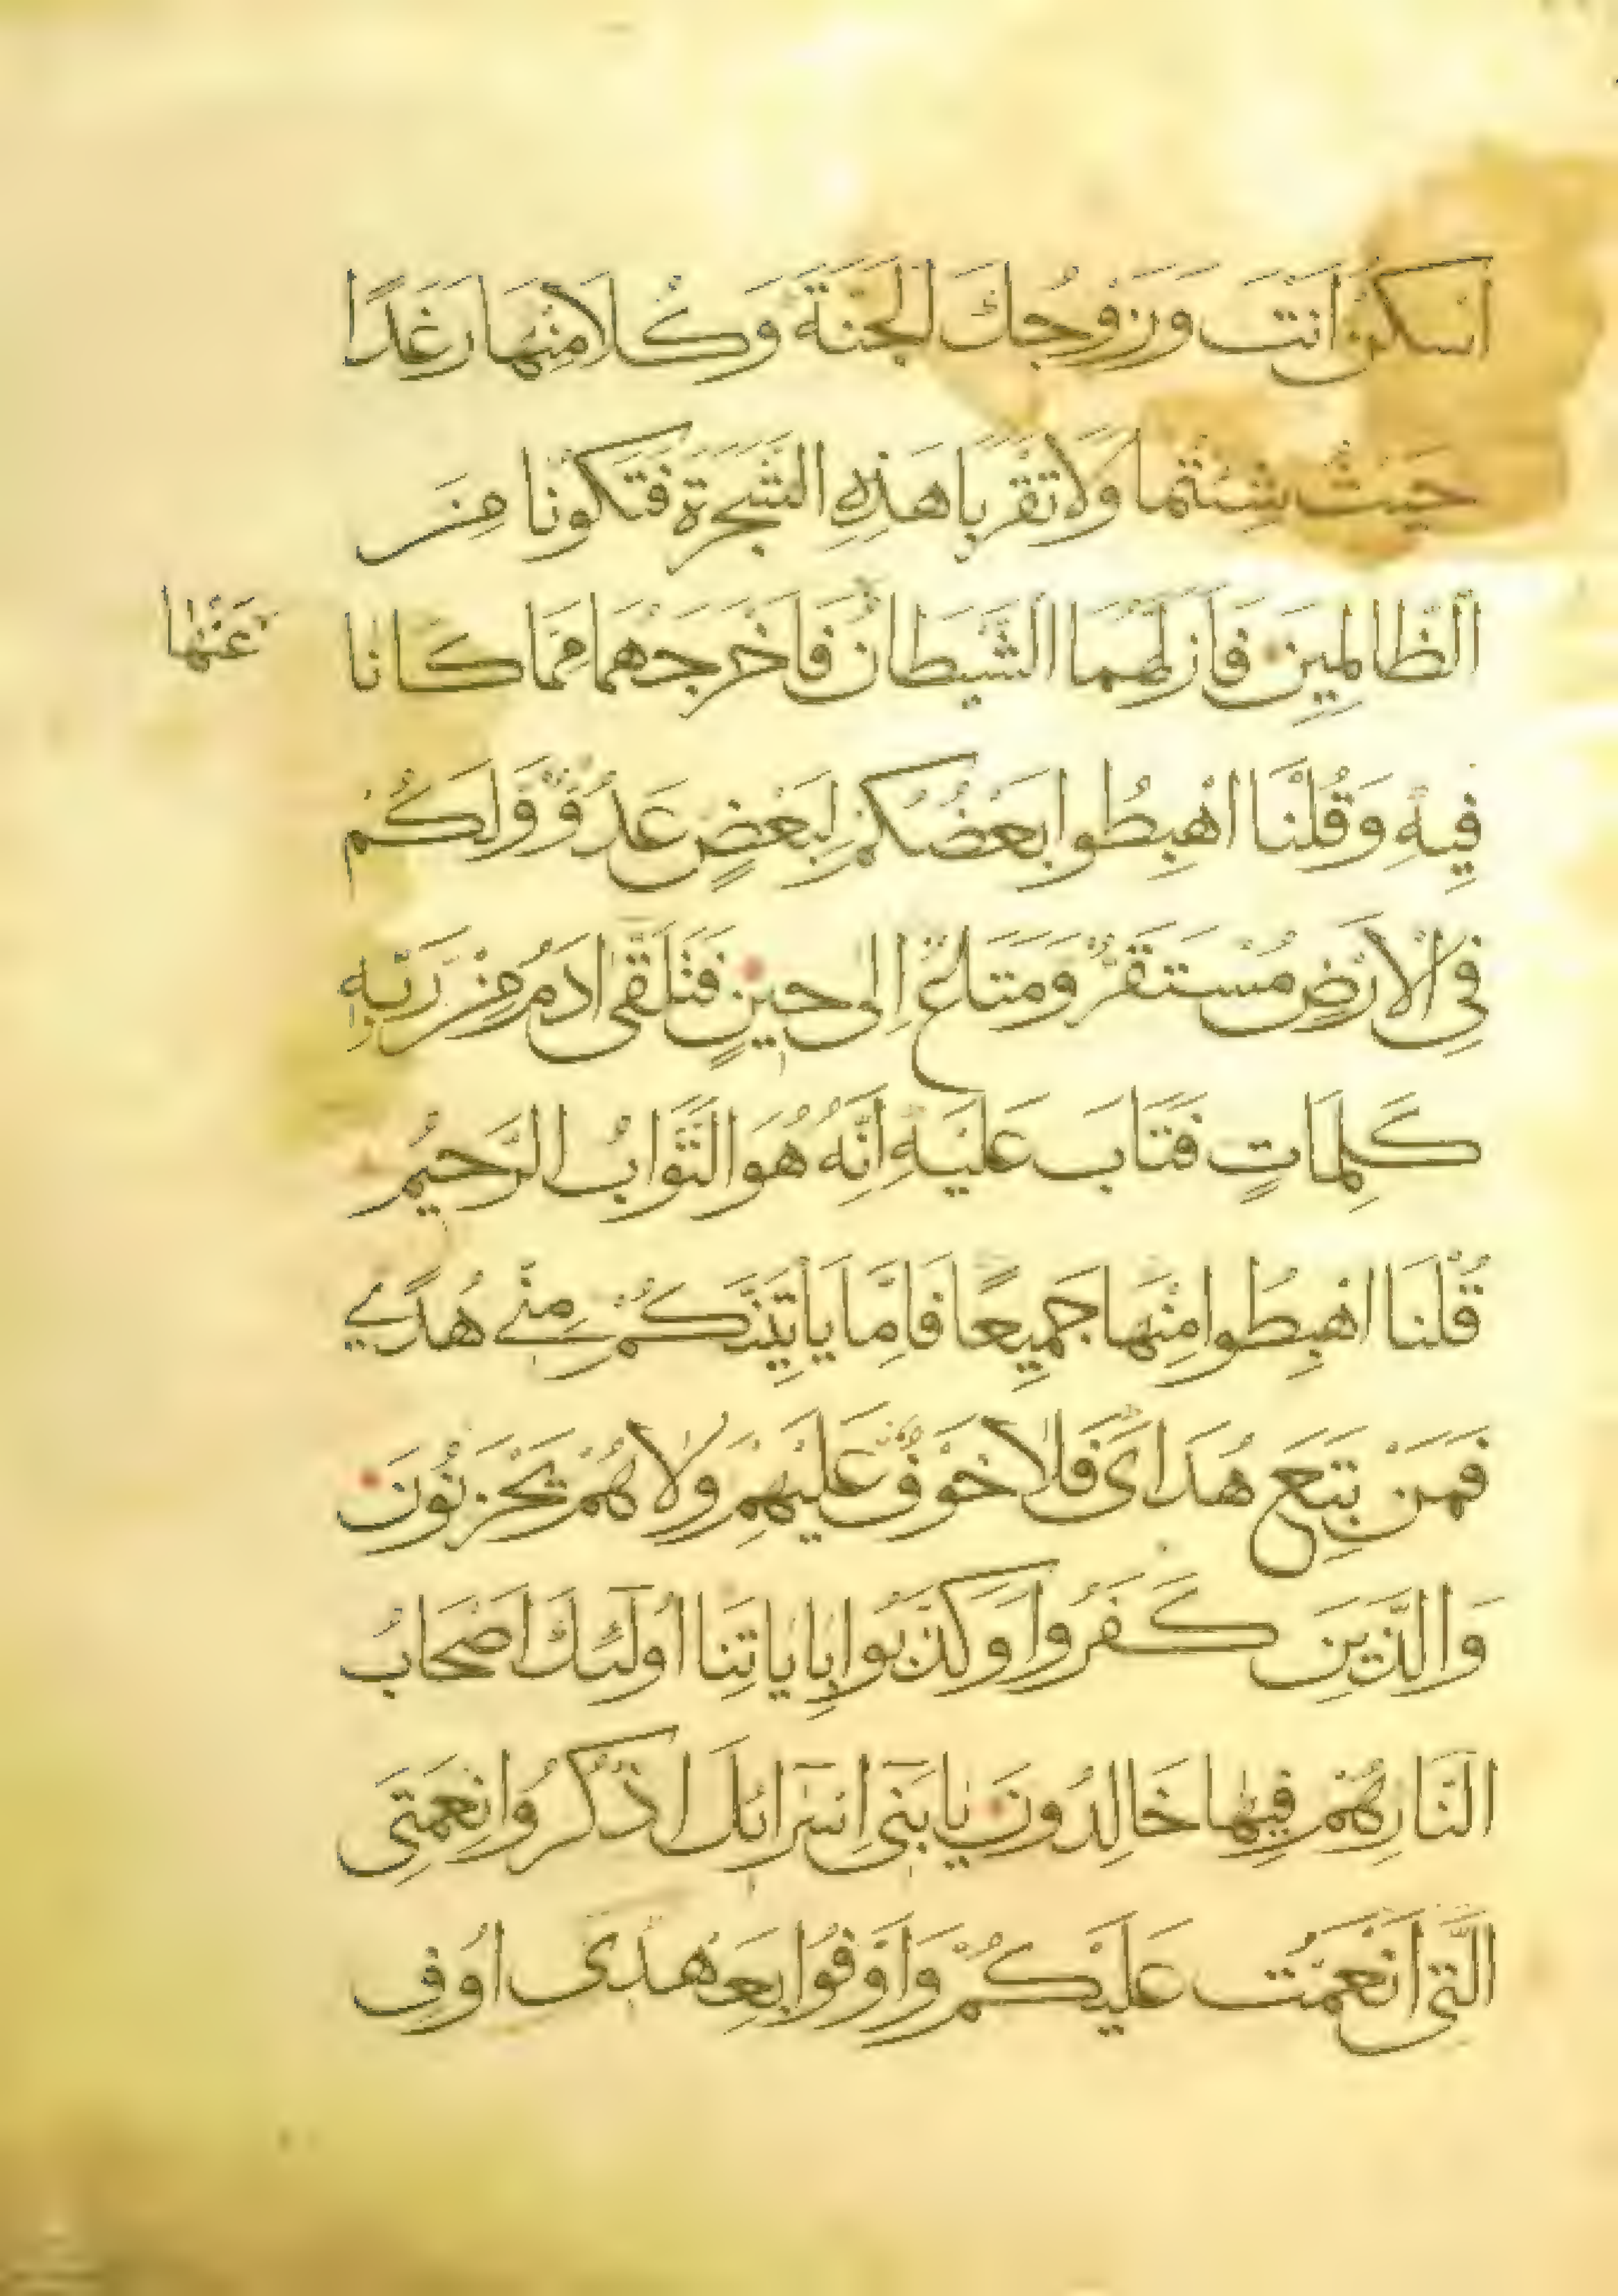 اسْكُنْ اَنْتَ وَزَوْجُكَ الْجَنَّةَ وَكُلَا مِنْهَا رَغَدًا
حَيْثُ شِئْتُمَا وَلَا تَقْرَبَا هَذِهِ الشَّجَرَةَ فَتَكُونَا مِنَ
الظَّالِمِينَ فَاَزَلَّهُمَا الشَّيْطَانُ فَاَخْرَجَهُمَا مِمَّا كَانَا
عَنْهَا
فِيهِ وَقُلْنَا اهْبِطُوا بَعْضُكُمْ لِبَعْضٍ عَدُوٌّ وَلَكُمْ
فِي الْاَرْضِ مُسْتَقَرٌّ وَمَتَاعٌ اِلَى حِينٍ فَتَلَقَّى ادَمُ مِنْ رَبِّهِ
كَلِمَاتٍ فَتَابَ عَلَيْهِ اِنَّهُ هُوَ التَّوَّابُ الرَّحِيمُ
قُلْنَا اهْبِطُوا مِنْهَا جَمِيعًا فَاِمَّا يَاْتِيَنَّكُمْ مِنِّي هُدًى
فَمَنْ تَبِعَ هُدَاىَ فَلَا خَوْفٌ عَلَيْهِمْ وَلَا هُمْ يَحْزَنُونَ
وَالَّذِينَ كَفَرُوا وَكَذَّبُوا بِايَاتِنَا اُولَئِكَ اَصْحَابُ
النَّارِ هُمْ فِيهَا خَالِدُونَ يَا بَنِى اِسْرَائلَ اذْكُرُوا نِعْمَتِىَ
الَّتِى اَنْعَمْتُ عَلَيْكُمْ وَاَوْفُوا بِعَهْدِى اُوفِ